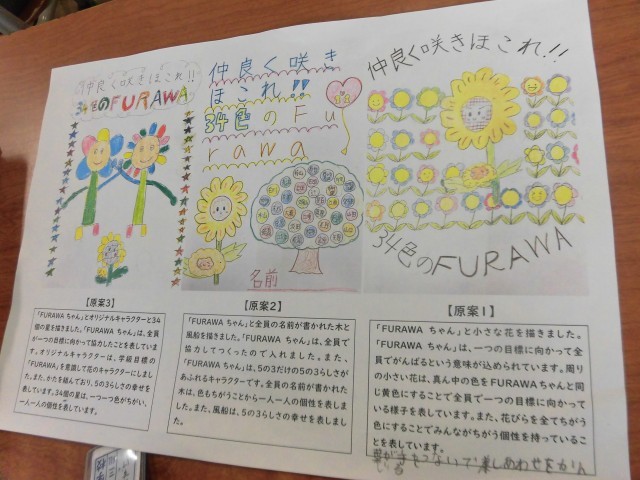 仲良く咲きほこれ!!
34色のFURAWA
【原案3】
「FURAWA ちゃん」とオリジナルキャラクターと34
個の星を描きました。「FURAWA ちゃん」は、全員
が一つの目標に向かって協力したことを表していま
す。オリジナルキャラクターは、学級目標の
「FURAWA」を意識して花のキャラクターにしまし
た。また、かたを組んでおり、5の3らしさの幸せを
表しています。34個の星は、一つ一つ色がちがい、
一人一人の個性を表しています。
仲良く咲き
ほこれ!!
34色のFu
rawa
名前
【原案2】
「FURAWA ちゃん」と全員の名前が書かれた木と
風船を描きました。「FURAWA ちゃん」は、全員で
協力してつくったので入れました。また、
「FURAWA ちゃん」は、5の3だけの5の3らしさが
あふれるキャラクターです。全員の名前が書かれた
木は、色もちがうことから一人一人の個性を表しま
した。また、風船は、5の3らしさの幸せを表しまし
た。
仲良く咲きほこれ!!
34色のFURAWA
【原案1】
「FURAWA ちゃん」と小さな花を描きました。
「FURAWA ちゃん」は、一つの目標に向かって全
員でがんばるという意味が込められています。周り
の小さい花は、真ん中の色をFURAWAちゃんと同
じ黄色にすることで全員で一つの目標に向かってい
る様子を表しています。また、花びらを全てちがう
色にすることでみんなちがう個性を持っていること
を表しています。